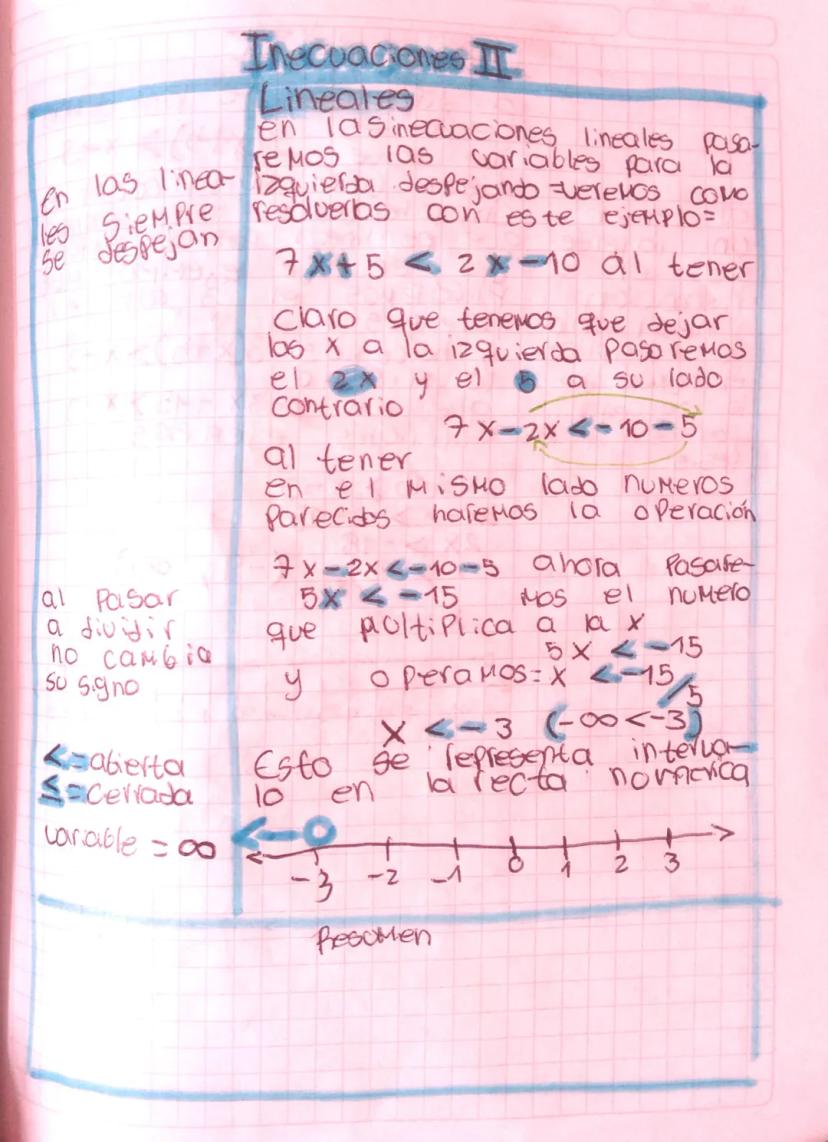 Inecuaciones II
Lineales
en las inecuaciones lineales pasa-
remos las variables para la
izquierda despejando = veremos como
resolverlas con este ejemplo =
En las linea-
les siempre
se despejan
7x + 5 < 2x - 10 al tener
claro que tenemos que dejar
las x a la izquierda pasaremos
el 2x y el 5 a su lado
contrario
7x - 2x < - 10 - 5
al tener
en el mismo lado numeros
parecidos haremos la operación
7x - 2x < - 10 - 5 ahora pasare-
5x < - 15 mos el numero
que multiplica a la x
5x < - 15
y operamos = x < - 15/5
x < - 3 (-∞ < -3)
al pasar
a dividir
no cambia
su signo
Esto se representa interva-
lo en la recta numerica
< = abierta
≤ = cerrada
variable = ∞
-3 -2 -1 0 1 2 3
Resumen